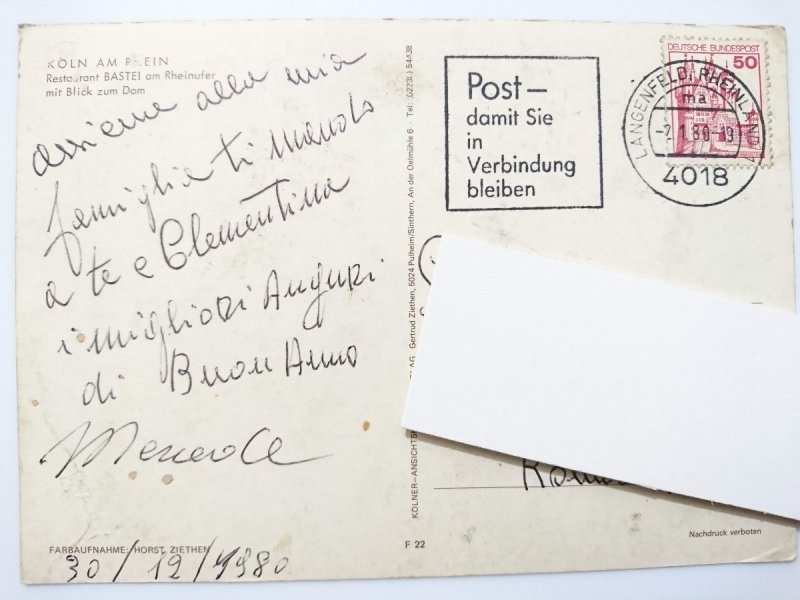 KÖLN AM RHEIN
Restaurant BASTEI am Rheinufer
mit Blick zum Dom
assieme alla mia
famiglia ti mando
a te e Clementina
i migliori Auguri
di Buon Anno
30/12/1980
FARBAUFNAHME: HORST ZIETHEN
F 22
Gertrud Ziethen, 5024 Pulheim/Sinthern, An der Oelmühle 6 · Tel: (02238) 54438
KÖLNER-ANSICHTSK
Post–
damit Sie
in
Verbindung
bleiben
DEUTSCHE BUNDESPOST
50
LANGENFELD, RHEINLAND
ma
4018
Nachdruck verboten